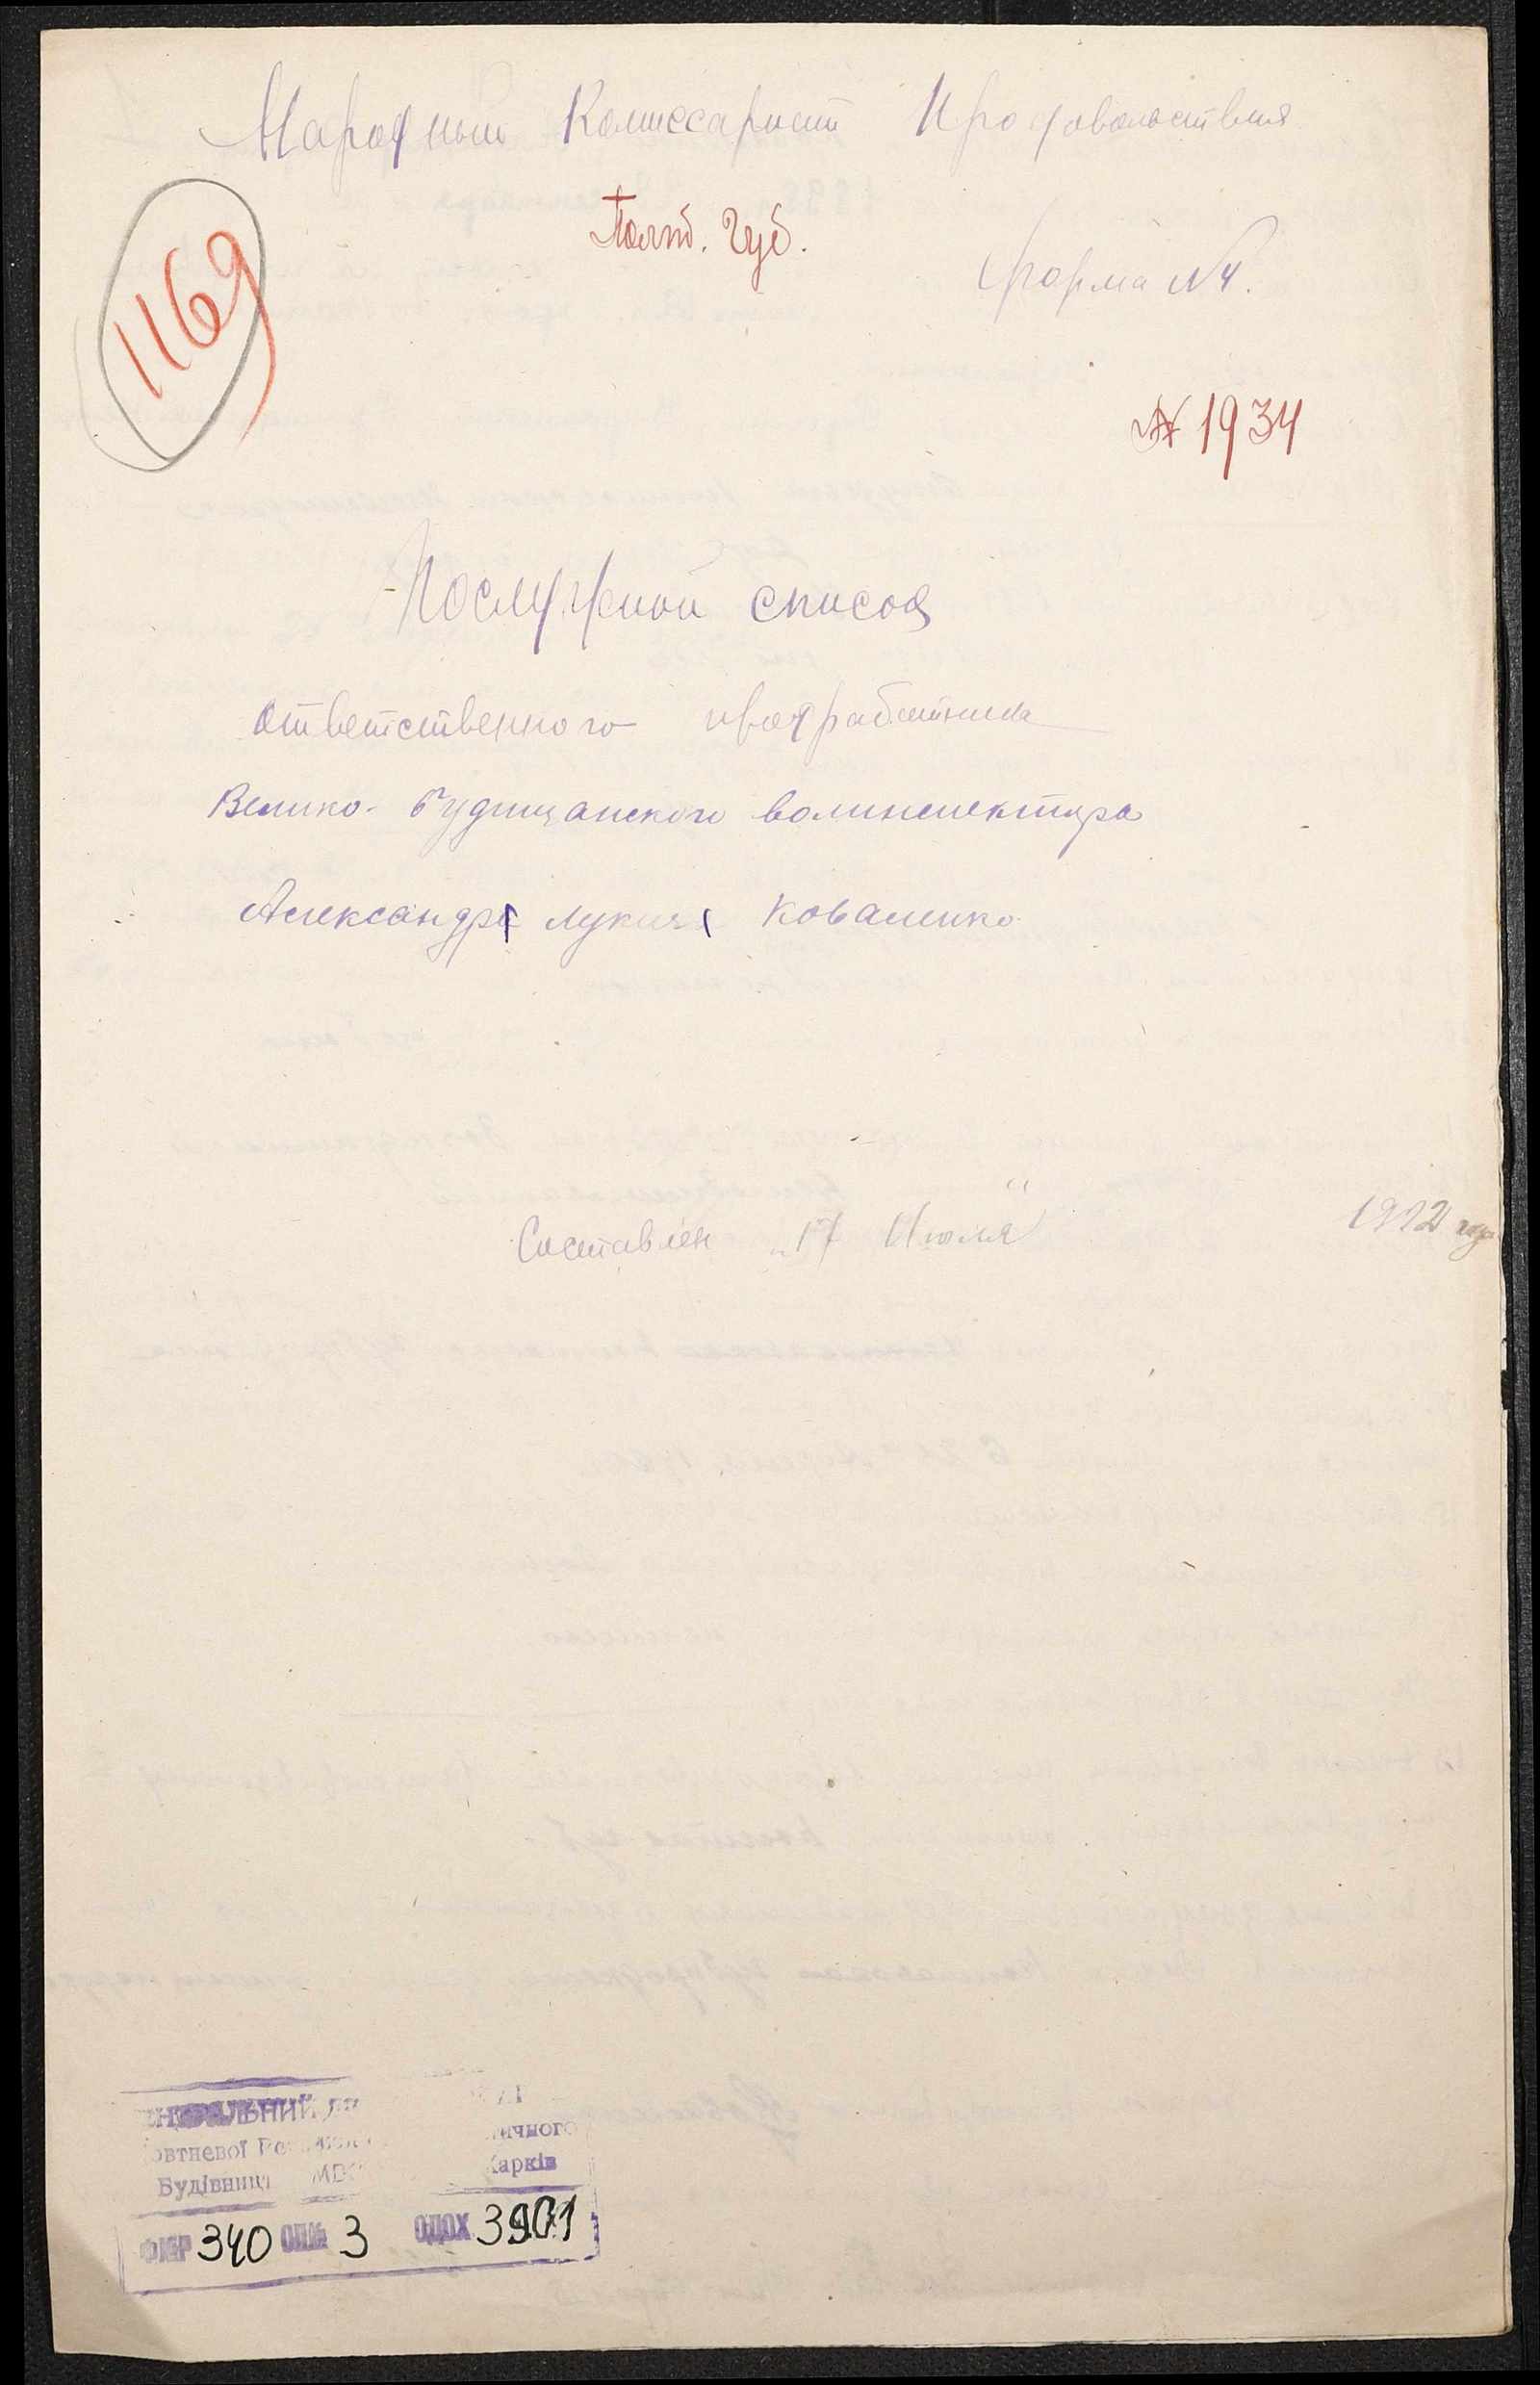 Народный Комиссариат Продовольствия
Полт. Губ.
Форма № 4.
1169
№ 1934
Послужной список
ответственного продработника
Велико-Будищанского волинспектора
Александра Лукича Коваленко
Составлен „17 Июля“ 1922 года
Будівниц
Харків
340 ОПИС 3 ОДОХ 3901